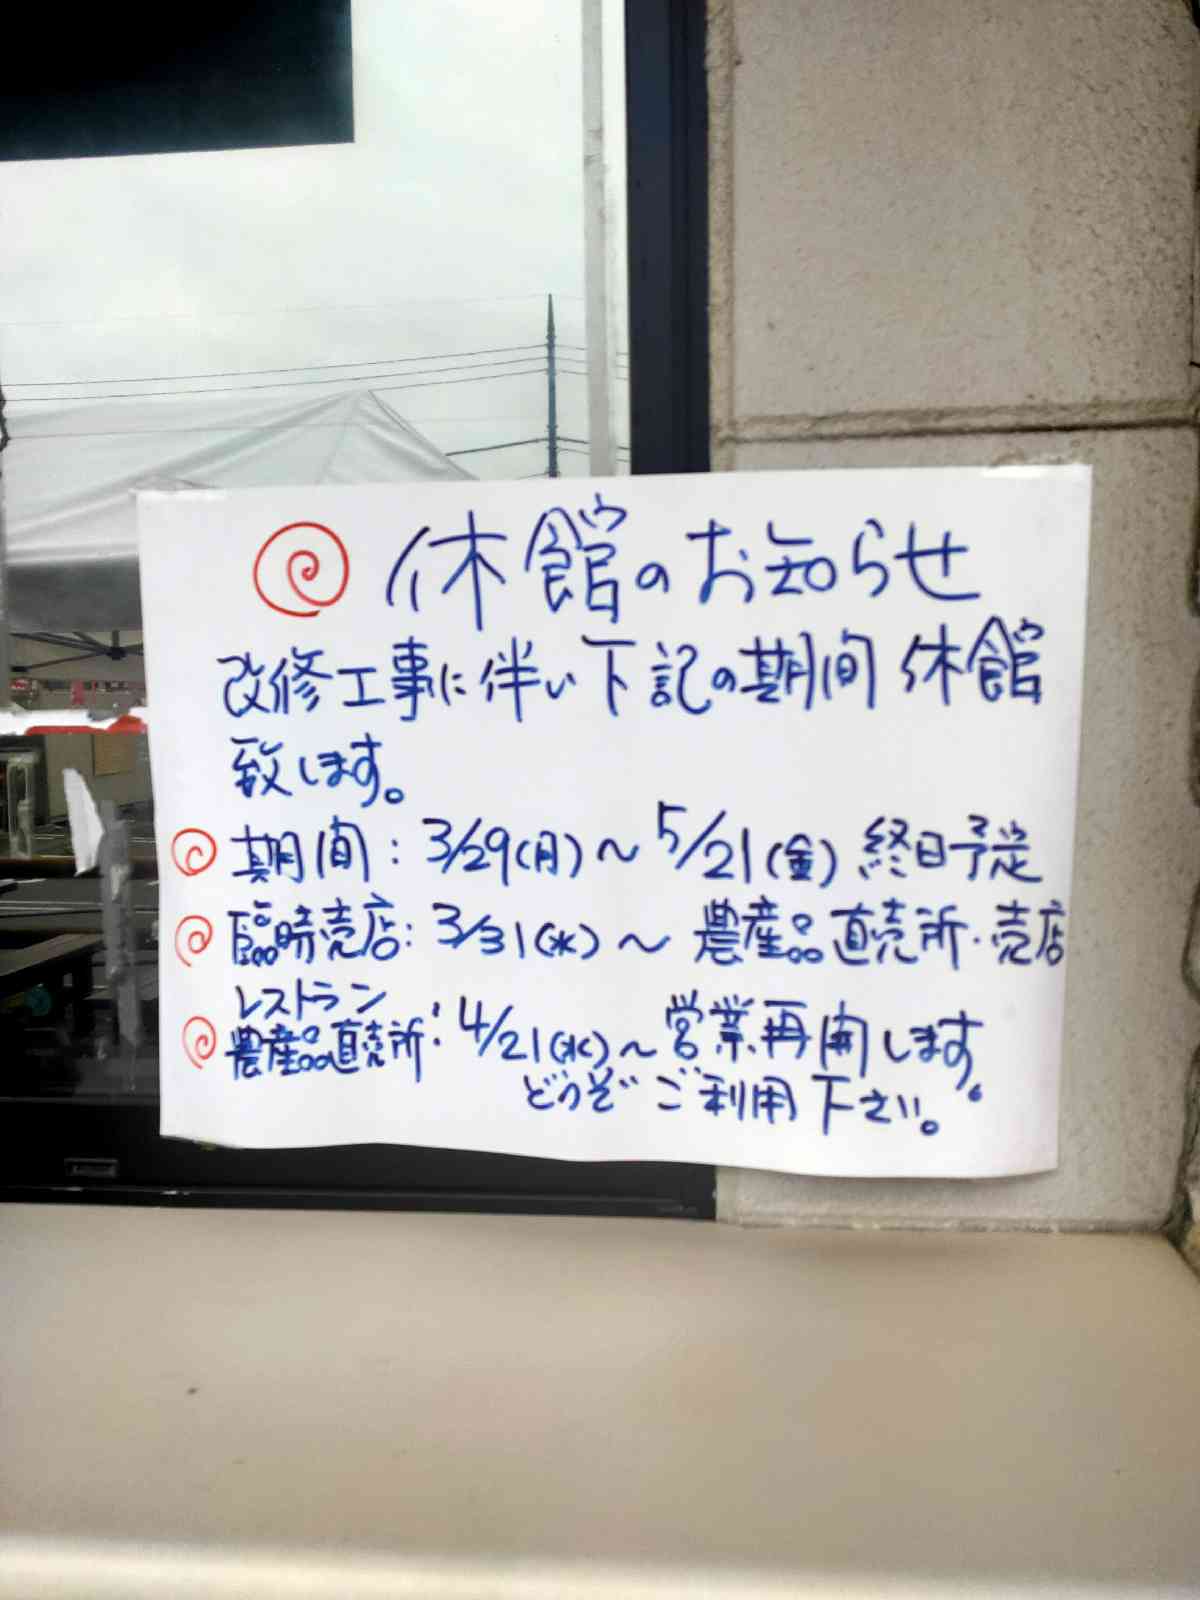 休館のお知らせ
改修工事に伴い下記の期間休館
致します。
期間：3/29(月)～5/21(金)終日予定
臨時売店：3/31(水)～農産品直売所・売店
レストラン
農産品直売所：4/21(水)～営業再開します。
どうぞご利用下さい。